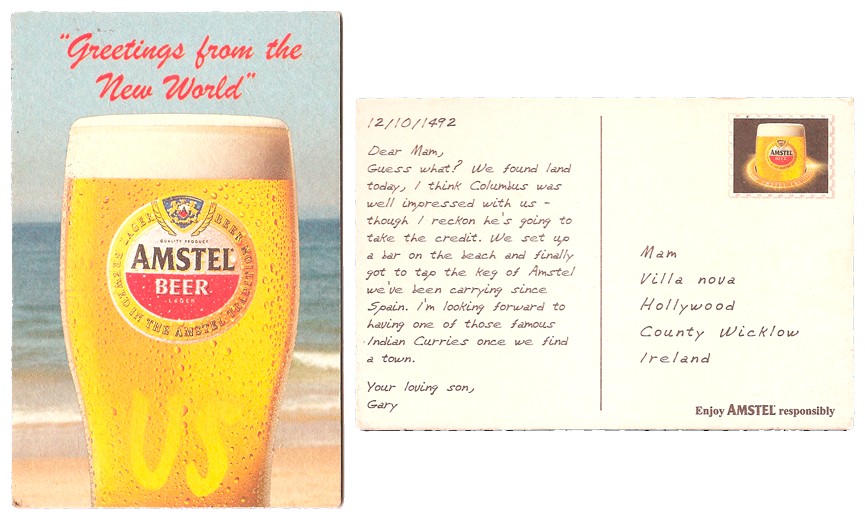 "Greetings from the
New World"
LAGER BEER
QUALITY PRODUCT
AMSTEL
BEER
LAGER
BREWED IN THE AMSTEL TRADITION
US
12/10/1492
Dear Mam,
Guess what? We found land
today, I think Columbus was
well impressed with us -
though I reckon he's going to
take the credit. We set up
a bar on the beach and finally
got to tap the keg of Amstel
we've been carrying since
Spain. I'm looking forward to
having one of those famous
Indian Curries once we find
a town.
Your loving son,
Gary
AMSTEL
BEER
Mam
Villa nova
Hollywood
County Wicklow
Ireland
Enjoy AMSTEL responsibly